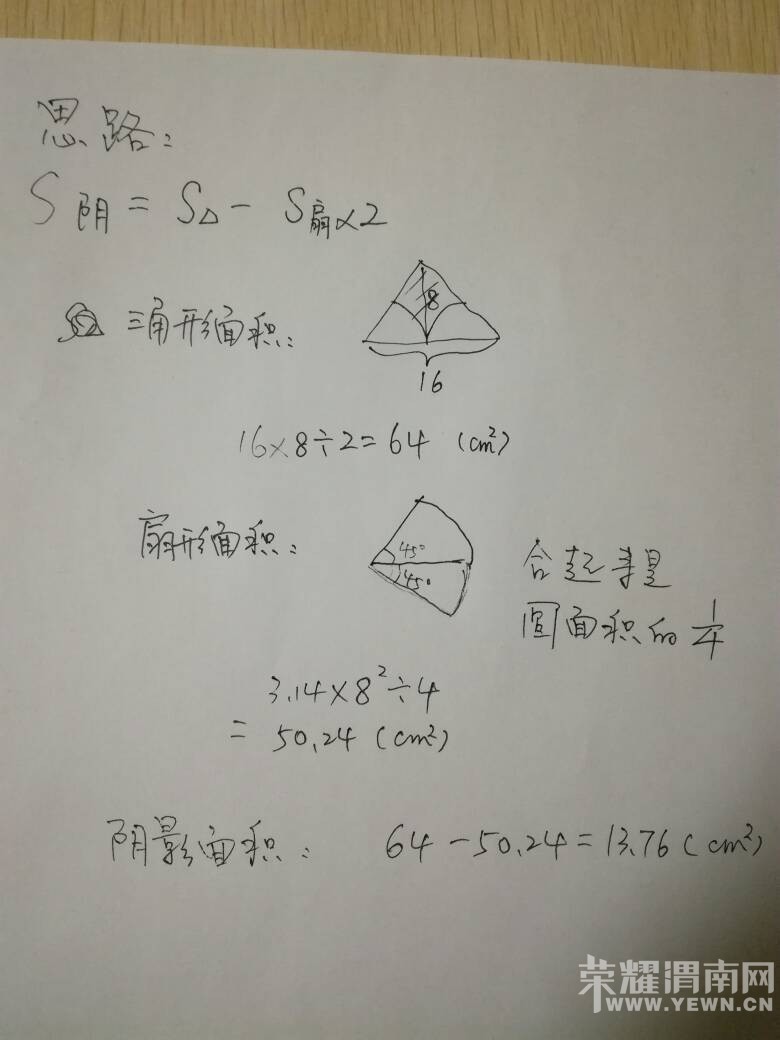 思路:
S阴 = S△ - S扇×2
三角形面积:
8
16
16×8÷2=64 (cm²)
扇形面积:
45°
45°
合起来是
圆面积的 1/4
3.14×8²÷4
= 50.24 (cm²)
阴影面积: 64-50.24=13.76 (cm²)
荣耀渭南网
WWW.YEWN.CN